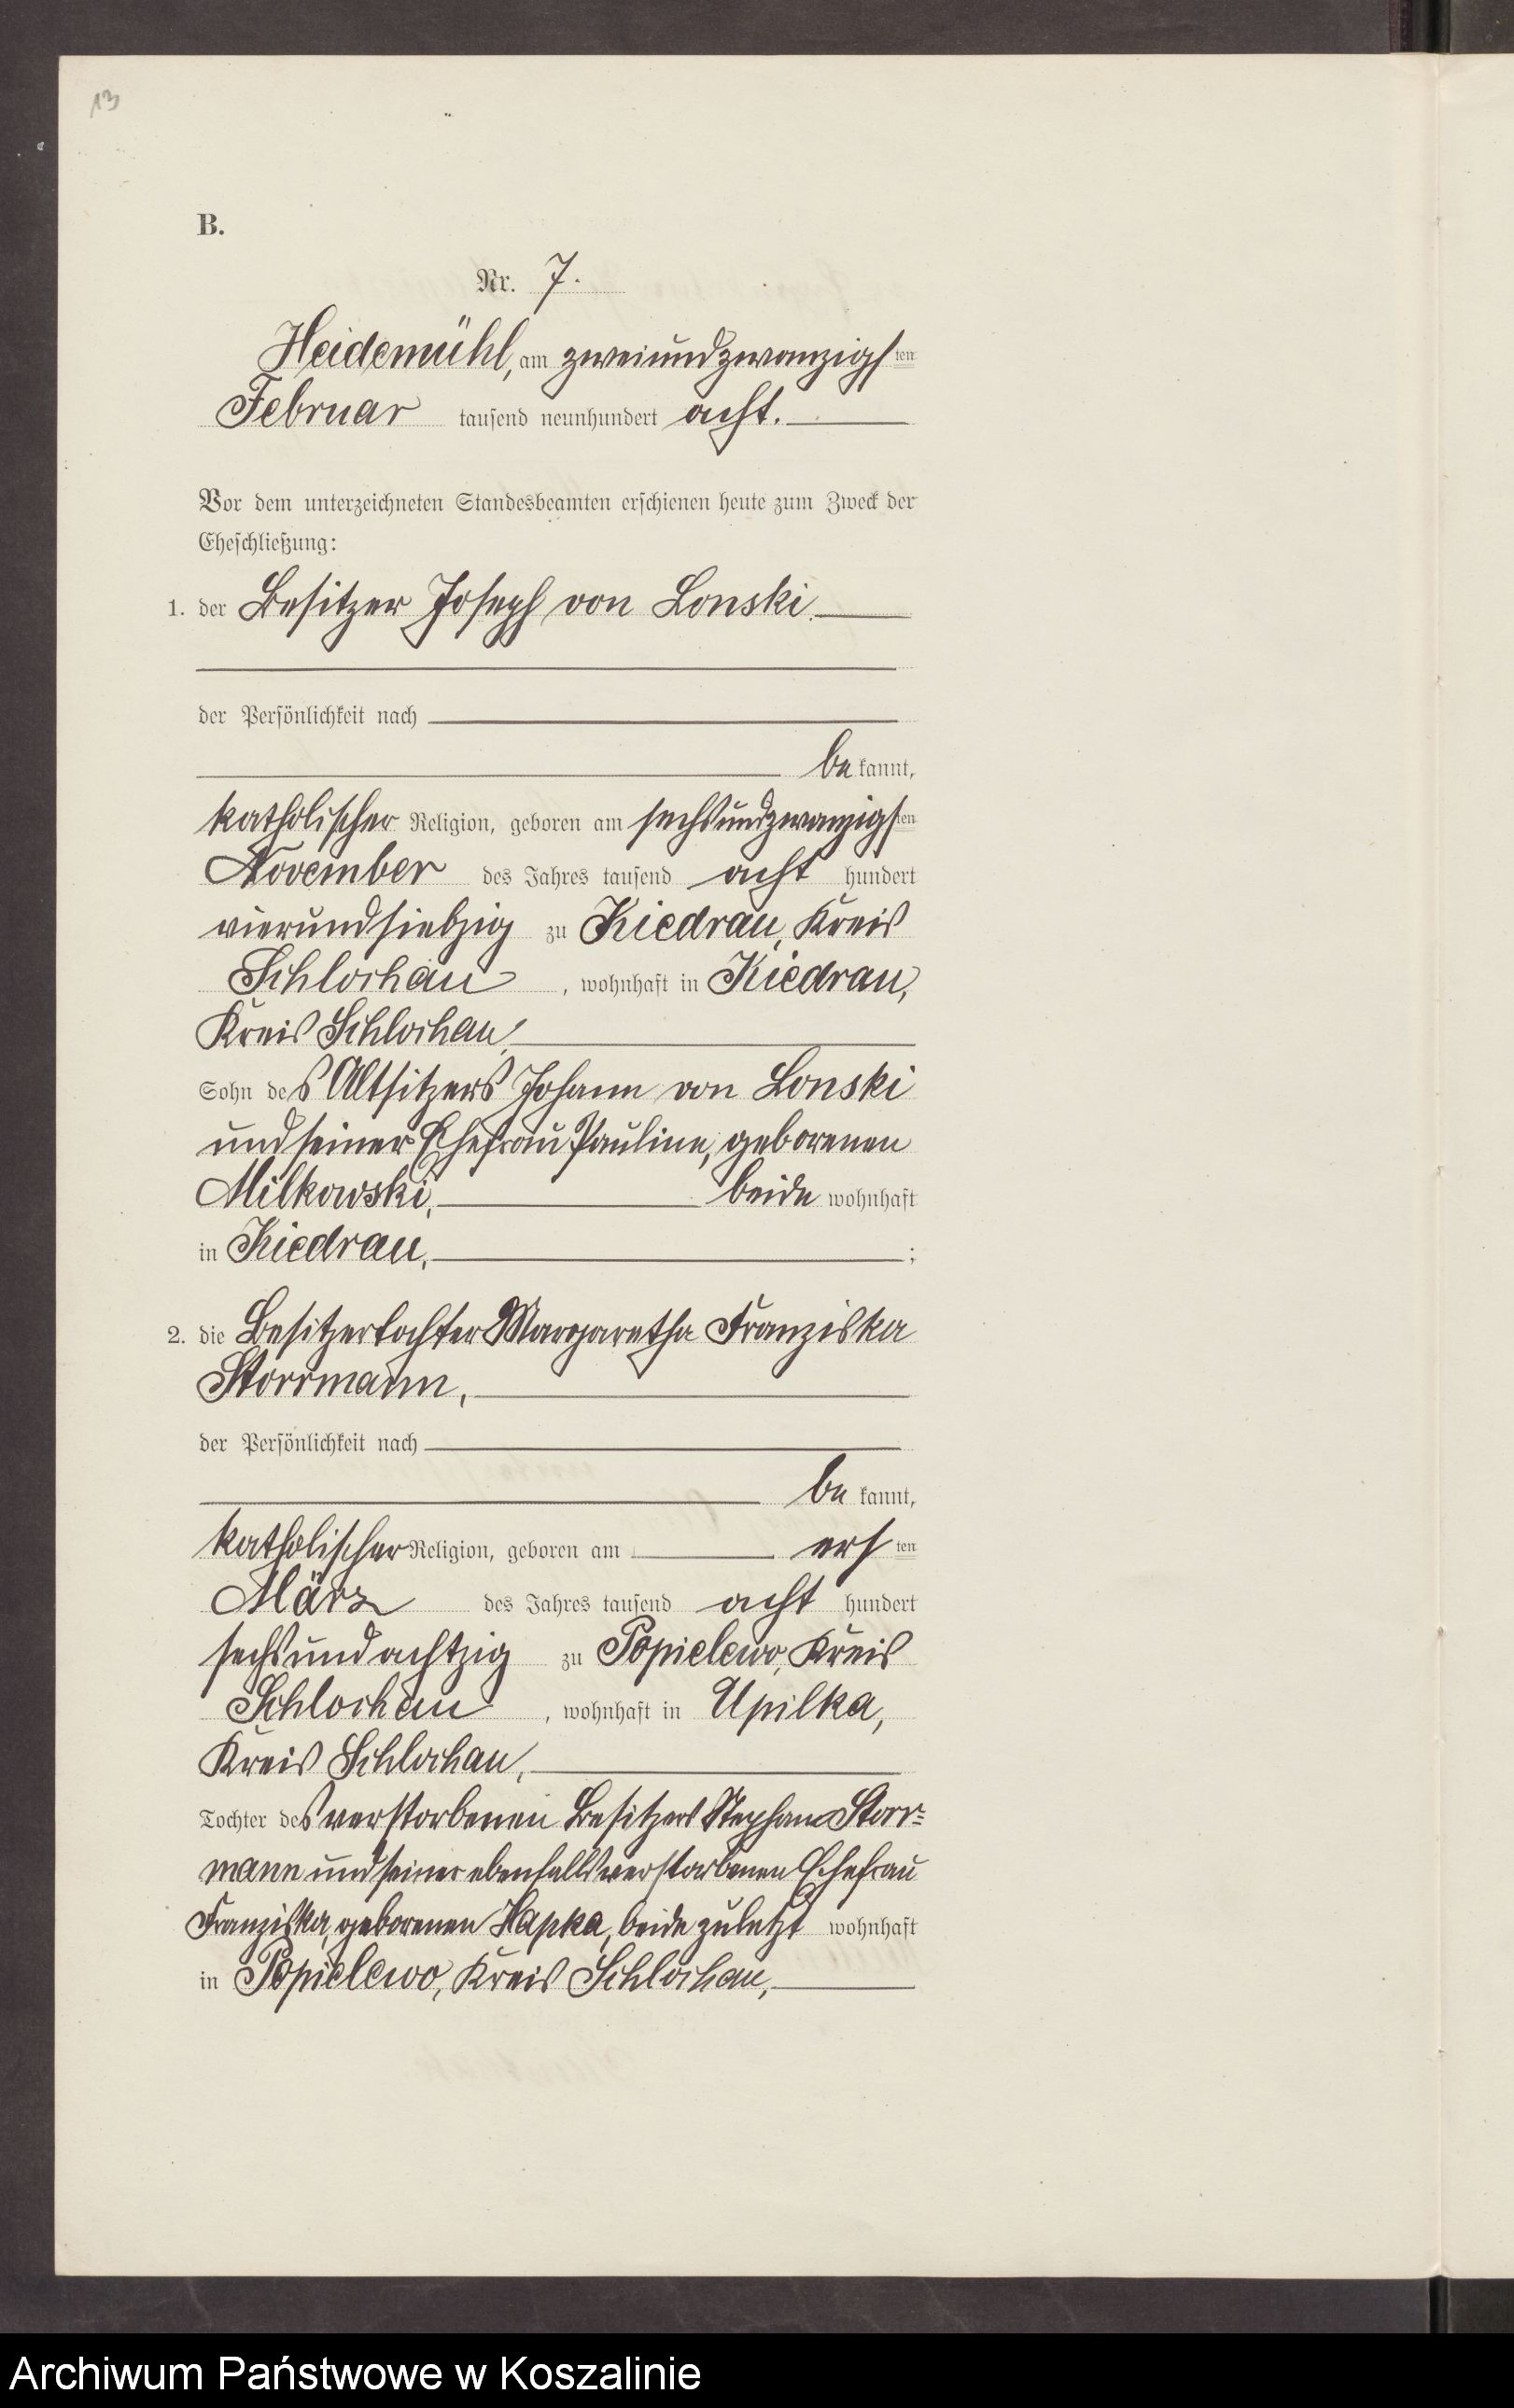 13
B.
Nr. 7.
Heidemühl, am zweiundzwanzigsten
Februar tausend neunhundert acht.
Vor dem unterzeichneten Standesbeamten erschienen heute zum Zweck der
Eheschließung:
1. der Besitzer Joseph von Lonski
der Persönlichkeit nach
be kannt,
katholischer Religion, geboren am sechsundzwanzigsten
November des Jahres tausend acht hundert
vierundsiebzig zu Kiedrau, Kreis
Schlochau, wohnhaft in Kiedrau,
Kreis Schlochau,
Sohn des Altsitzers Johann von Lonski
und seiner Ehefrau Pauline, geborenen
Milkowski, beide wohnhaft
in Kiedrau, ;
2. die Besitzertochter Margaretha Franziska
Storrmann,
der Persönlichkeit nach
be kannt,
katholischer Religion, geboren am ersten
März des Jahres tausend acht hundert
sechsundachtzig zu Popielewo, Kreis
Schlochau, wohnhaft in Upilka,
Kreis Schlochau,
Tochter des verstorbenen Besitzers Stephan Storr-
mann und seiner ebenfalls verstorbenen Ehefrau
Franziska, geborenen Hapka, beide zuletzt wohnhaft
in Popielewo, Kreis Schlochau,
Archiwum Państwowe w Koszalinie